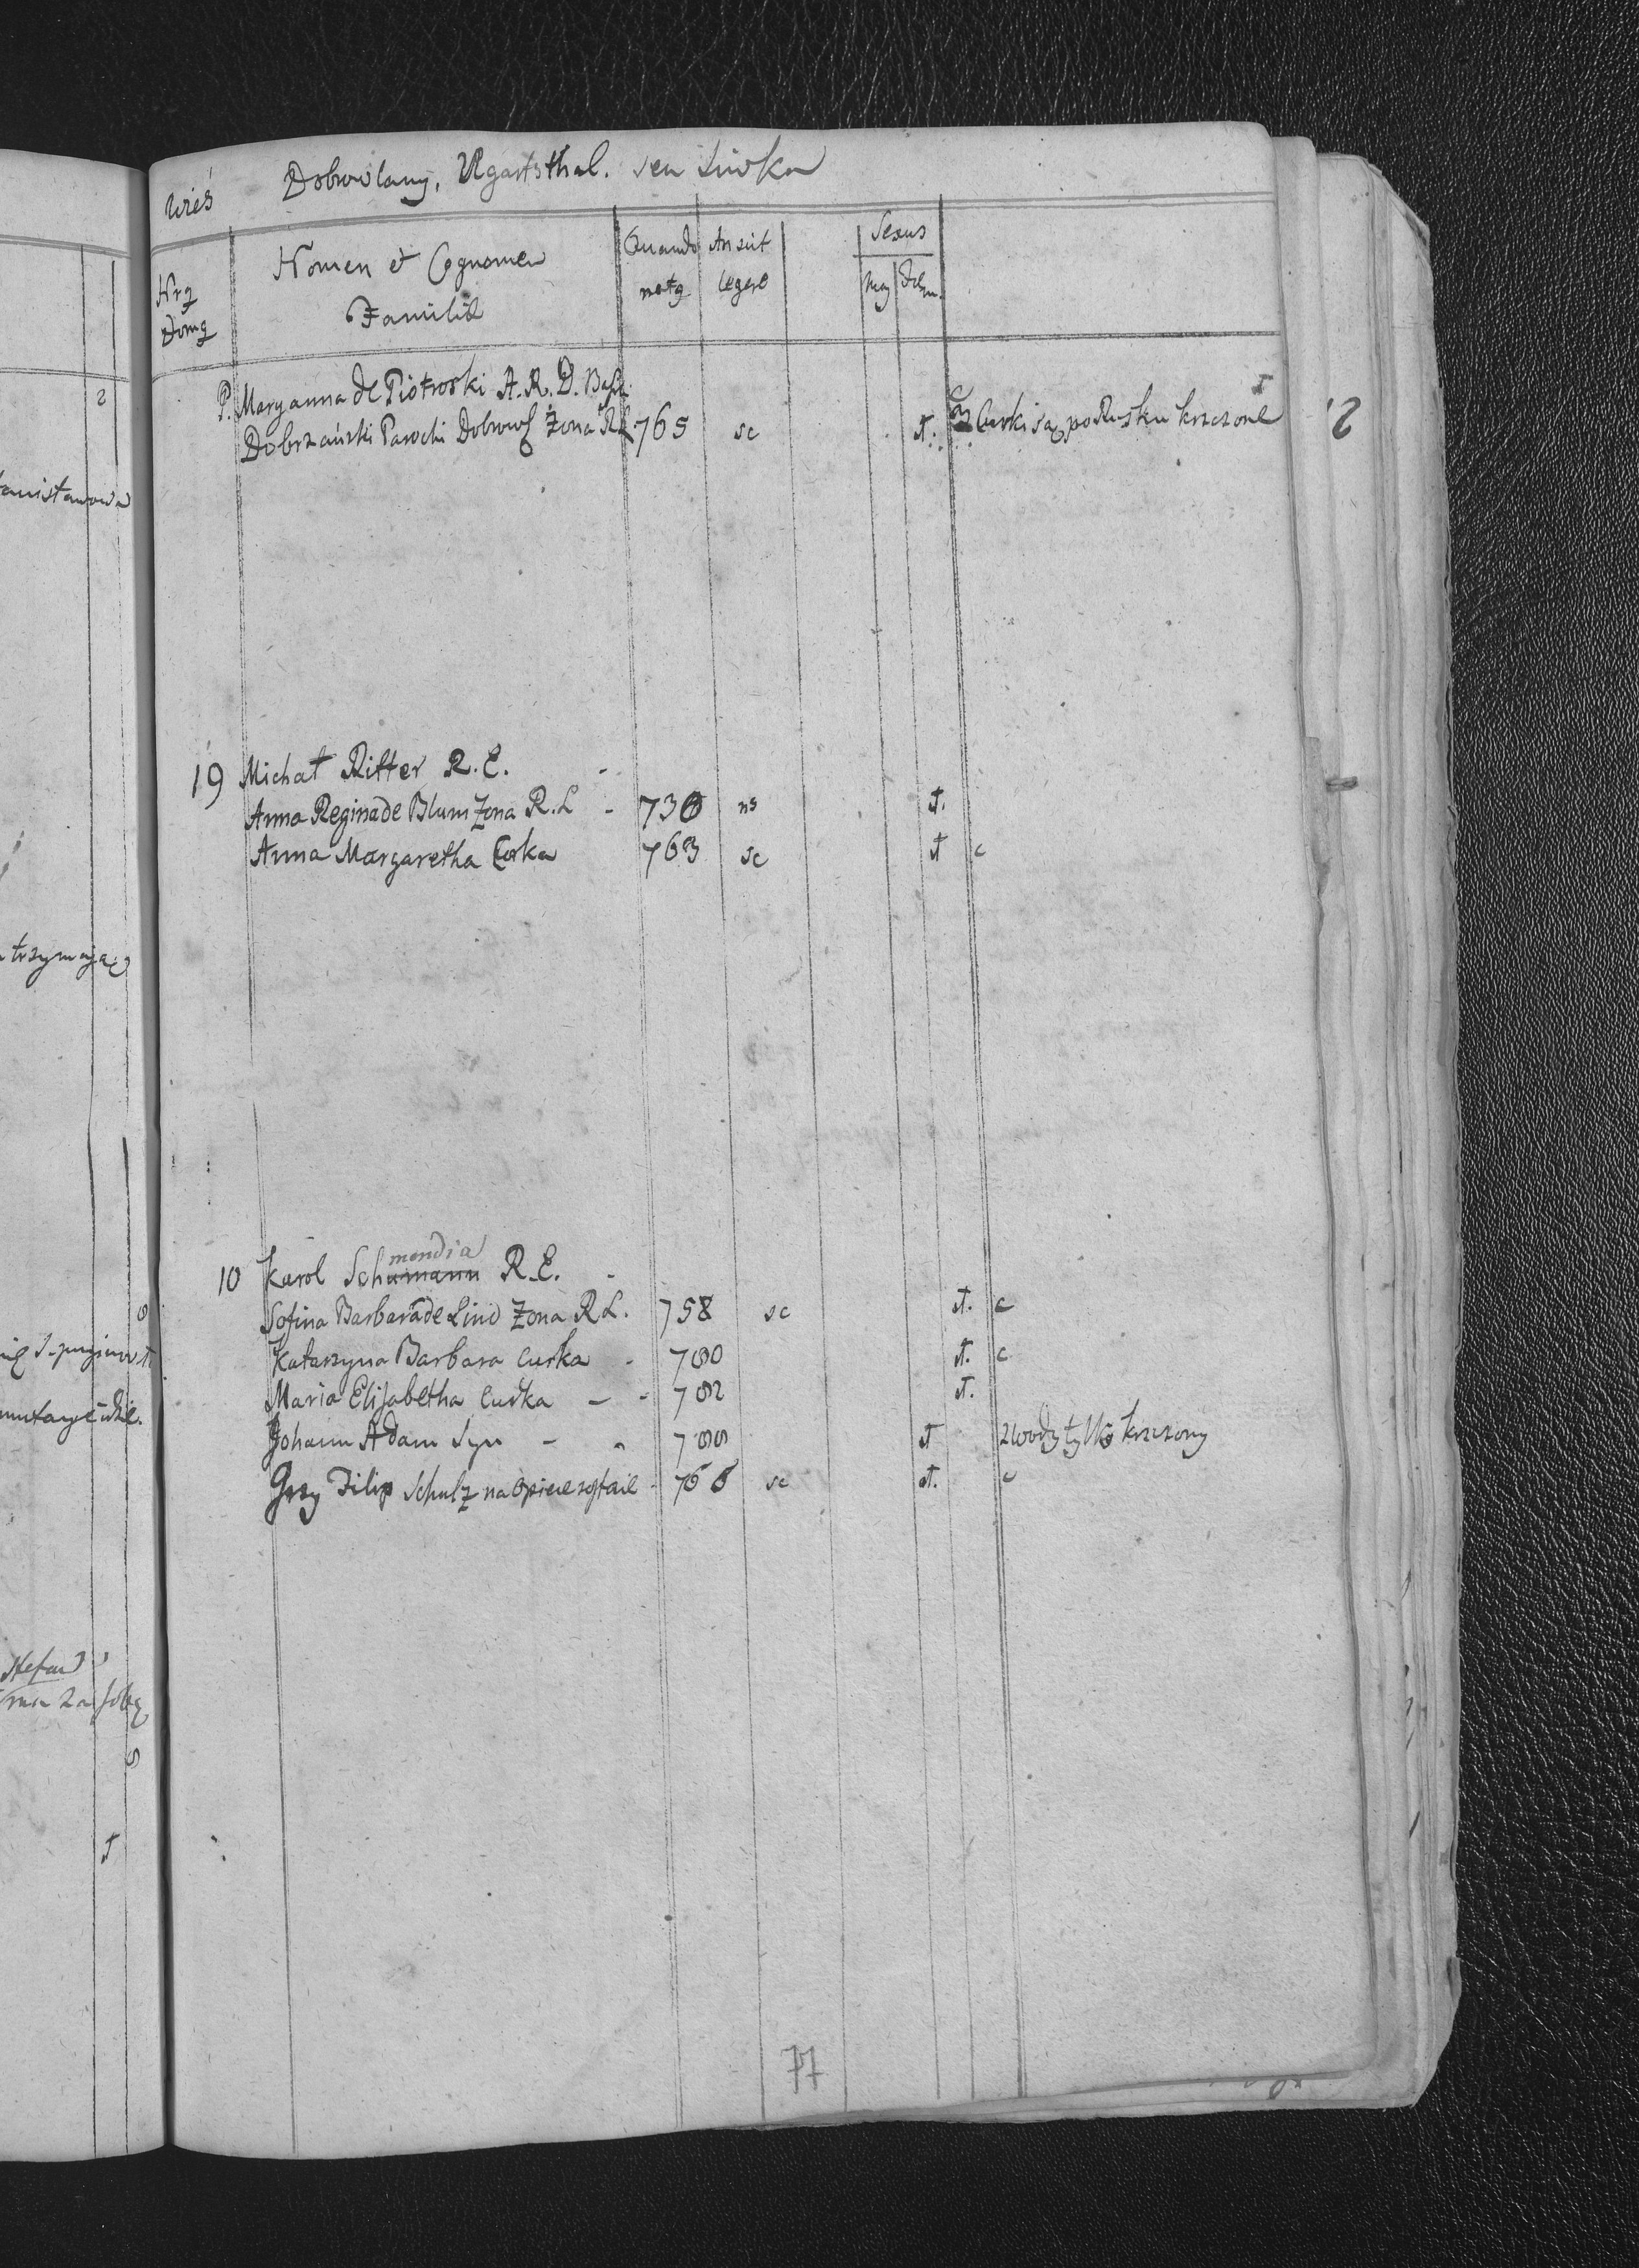 wieś Dobrowlany, Ugartsthal. seu Siwka
Nrꝫ Domꝫ
Nomen et Cognomen Familiæ
Quando natꝫ
An scit legere
Sexus
Mas Fem.
P. Maryanna de Piotroski A. R. D. Basil.
Dobrzański Parochi Dobrowl Żona RL 765 sc t. Curki są po Rusku krzczone
19 Michał Ritter R. E.
Anna Regina de Blum Zona R. L - 730 ns t.
Anna Margaretha Corka 763 sc t c
mendia
10 Karol Schumann R. E. -
Sofina Barbara de Lind Zona R L. 758 sc t. c
Katarzyna Barbara curka - 780 t. c
Maria Elisabetha curka - - 782 t.
Johann Adam Syn - - 788 t z wody tylko krzczony
Grzy Filip Schulz na Opiece zostaie - 766 sc t. c
77
2
tanistawowa
trzymając
Stefan
ma za sobą